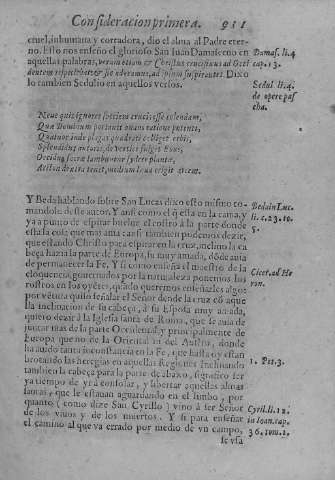 Consideracion primera. 911
cruel, inhumana y corradora, dio el alma al Padre eter-
no. Esto nos enseño el glorioso San Juan Damasceno en
aquellas palabras, verum etiam & Christus crucifixus ad Occi
dentem respiciebat & sic adoramus, ad ipsum suspirantes. Dixo
lo tambien Sedulio en aquellos versos.
Damas. li. 4
cap. 13.
Sedul li. 4.
de opere pas
cha.
Neve quis ignoret speciem crucis esse colendam,
Quæ Dominum portavit ovans ratione potenti,
Quatuor inde plagas quadrati colligit orbis,
Splendidus auctoris, de vertice fulget Eous,
Occiduo sacræ lambuntur sydere plantæ,
Arcton dextra tenet, medium læva erigit axem.
Y Beda hablando sobre San Lucas dixo esto mismo to-
mandole de este autor. Y ansi como el que esta en la cama, y
ya a punto de espirar buelve el rostro à la parte donde
esta la cosa que mas ama cansi tambien podemos dezir,
que estando Christo para espirar en la cruz, inclino la ca
beça hazia la parte de Europa, su muy amada, dõde avia
de permanecer la Fe, Y si como enseña el maestro de la
eloquencia, governados por la naturaleza ponemos los
rostros en los oyẽtes, quãdo queremos enseñarles algo:
por vẽtura quiso señalar el Señor dende la cruz cõ aque
lla inclinacion de su cabeça, à su España muy amada,
quiero dezir à la Iglesia santa de Roma, que se avia de
juntar mas de la parte Occidental y principalmente de
Europa que no de la Oriental ni del Austro, donde
ha avido tanta inconstancia en la Fe, que hasta oy estan
brotando las heregias en aquellas Regiones Inclinando
tambien la cabeça para la parte de abaxo, significo ser
ya tiempo de yr à consolar, y libertar aquellas almas
santas, que le estavan aguardando en el limbo, por
quanto (como dize San Cyrillo) vino à ser Señor
de los vivos y de los muertos. Y si para enseñar
el camino al que va errado por medio de vn campo,
se vsa
Beda in Luc.
li. 6. c. 23. to.
5.
Cicer. ad He
ren.
1. Pet. 3.
Cyril. li. 12.
in Ioan. cap.
36. tom. 1.